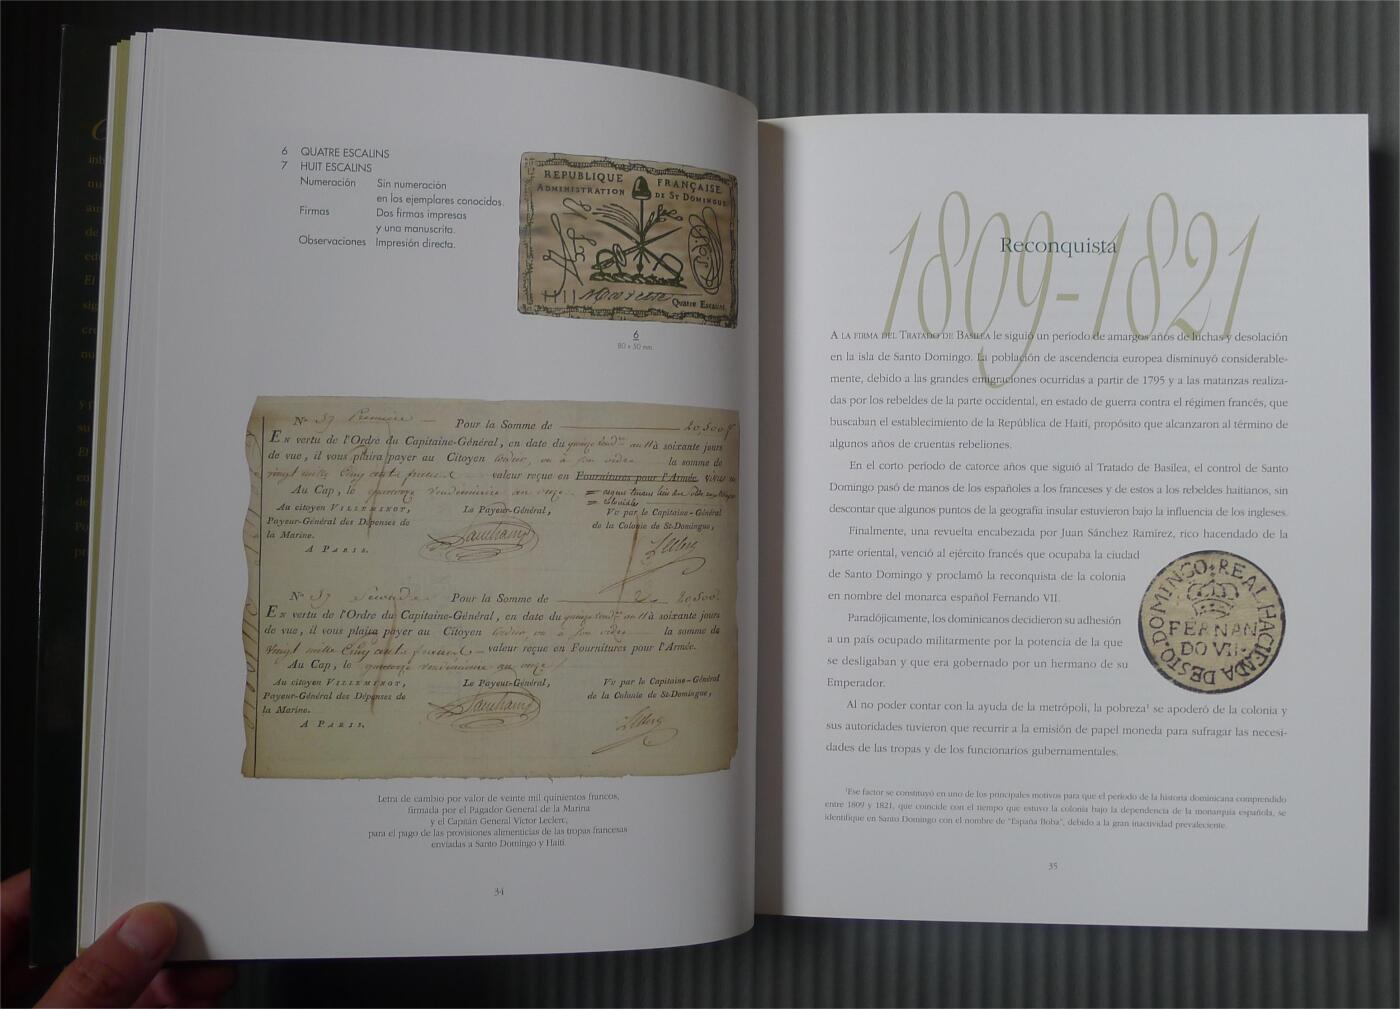 6 QUATRE ESCALINS
7 HUIT ESCALINS
Numeración Sin numeración
en los ejemplares conocidos.
Firmas Dos firmas impresas
y una manuscrita.
Observaciones Impresión directa.
REPUBLIQUE FRANÇAISE
ADMINISTRATION DE ST DOMINGUE
Quatre Escalins
6
80 x 50 mm.
No 37 Première Pour la Somme de 20,500 f
En vertu de l'Ordre du Capitaine-Général, en date du an 11 à soixante jours
de vue, il vous plaira payer au Citoyen ou à son ordre la somme de
vingt mille Cinq cents francs valeur reçue en Fournitures pour l'Armée
Au Cap, le quatorze vendémiaire an onze
Au citoyen VILLEMINOT, Le Payeur-Général, Vu par le Capitaine-Général
Payeur-Général des Dépenses de de la Colonie de St-Domingue,
la Marine.
A PARIS. Leclerc
No 37 Seconde Pour la Somme de 20,500
En vertu de l'Ordre du Capitaine-Général, en date du an 11 à soixante jours
de vue, il vous plaira payer au Citoyen ou à son ordre la somme de
Vingt mille Cinq cents francs valeur reçue en Fournitures pour l'Armée.
Au Cap, le quatorze vendémiaire an onze
Au citoyen VILLEMINOT, Le Payeur-Général, Vu par le Capitaine-Général
Payeur-Général des Dépenses de de la Colonie de St-Domingue,
la Marine.
A PARIS. Leclerc
Letra de cambio por valor de veinte mil quinientos francos,
firmada por el Pagador General de la Marina
y el Capitán General Víctor Leclerc,
para el pago de las provisiones alimenticias de las tropas francesas
enviadas a Santo Domingo y Haití.
34
1809-1821
Reconquista
A LA FIRMA DEL TRATADO DE BASILEA le siguió un período de amargos años de luchas y desolación
en la isla de Santo Domingo. La población de ascendencia europea disminuyó considerable-
mente, debido a las grandes emigraciones ocurridas a partir de 1795 y a las matanzas realiza-
das por los rebeldes de la parte occidental, en estado de guerra contra el régimen francés, que
buscaban el establecimiento de la República de Haití, propósito que alcanzaron al término de
algunos años de cruentas rebeliones.
En el corto período de catorce años que siguió al Tratado de Basilea, el control de Santo
Domingo pasó de manos de los españoles a los franceses y de estos a los rebeldes haitianos, sin
descontar que algunos puntos de la geografía insular estuvieron bajo la influencia de los ingleses.
Finalmente, una revuelta encabezada por Juan Sánchez Ramírez, rico hacendado de la
parte oriental, venció al ejército francés que ocupaba la ciudad
de Santo Domingo y proclamó la reconquista de la colonia
en nombre del monarca español Fernando VII.
Paradójicamente, los dominicanos decidieron su adhesión
a un país ocupado militarmente por la potencia de la que
se desligaban y que era gobernado por un hermano de su
Emperador.
REAL HACIENDA DE STO. DOMINGO
FERNAN
DO VII
Al no poder contar con la ayuda de la metrópoli, la pobreza¹ se apoderó de la colonia y
sus autoridades tuvieron que recurrir a la emisión de papel moneda para sufragar las necesi-
dades de las tropas y de los funcionarios gubernamentales.
¹Ese factor se constituyó en uno de los principales motivos para que el período de la historia dominicana comprendido
entre 1809 y 1821, que coincide con el tiempo que estuvo la colonia bajo la dependencia de la monarquía española, se
identifique en Santo Domingo con el nombre de "España Boba", debido a la gran inactividad prevaleciente.
35